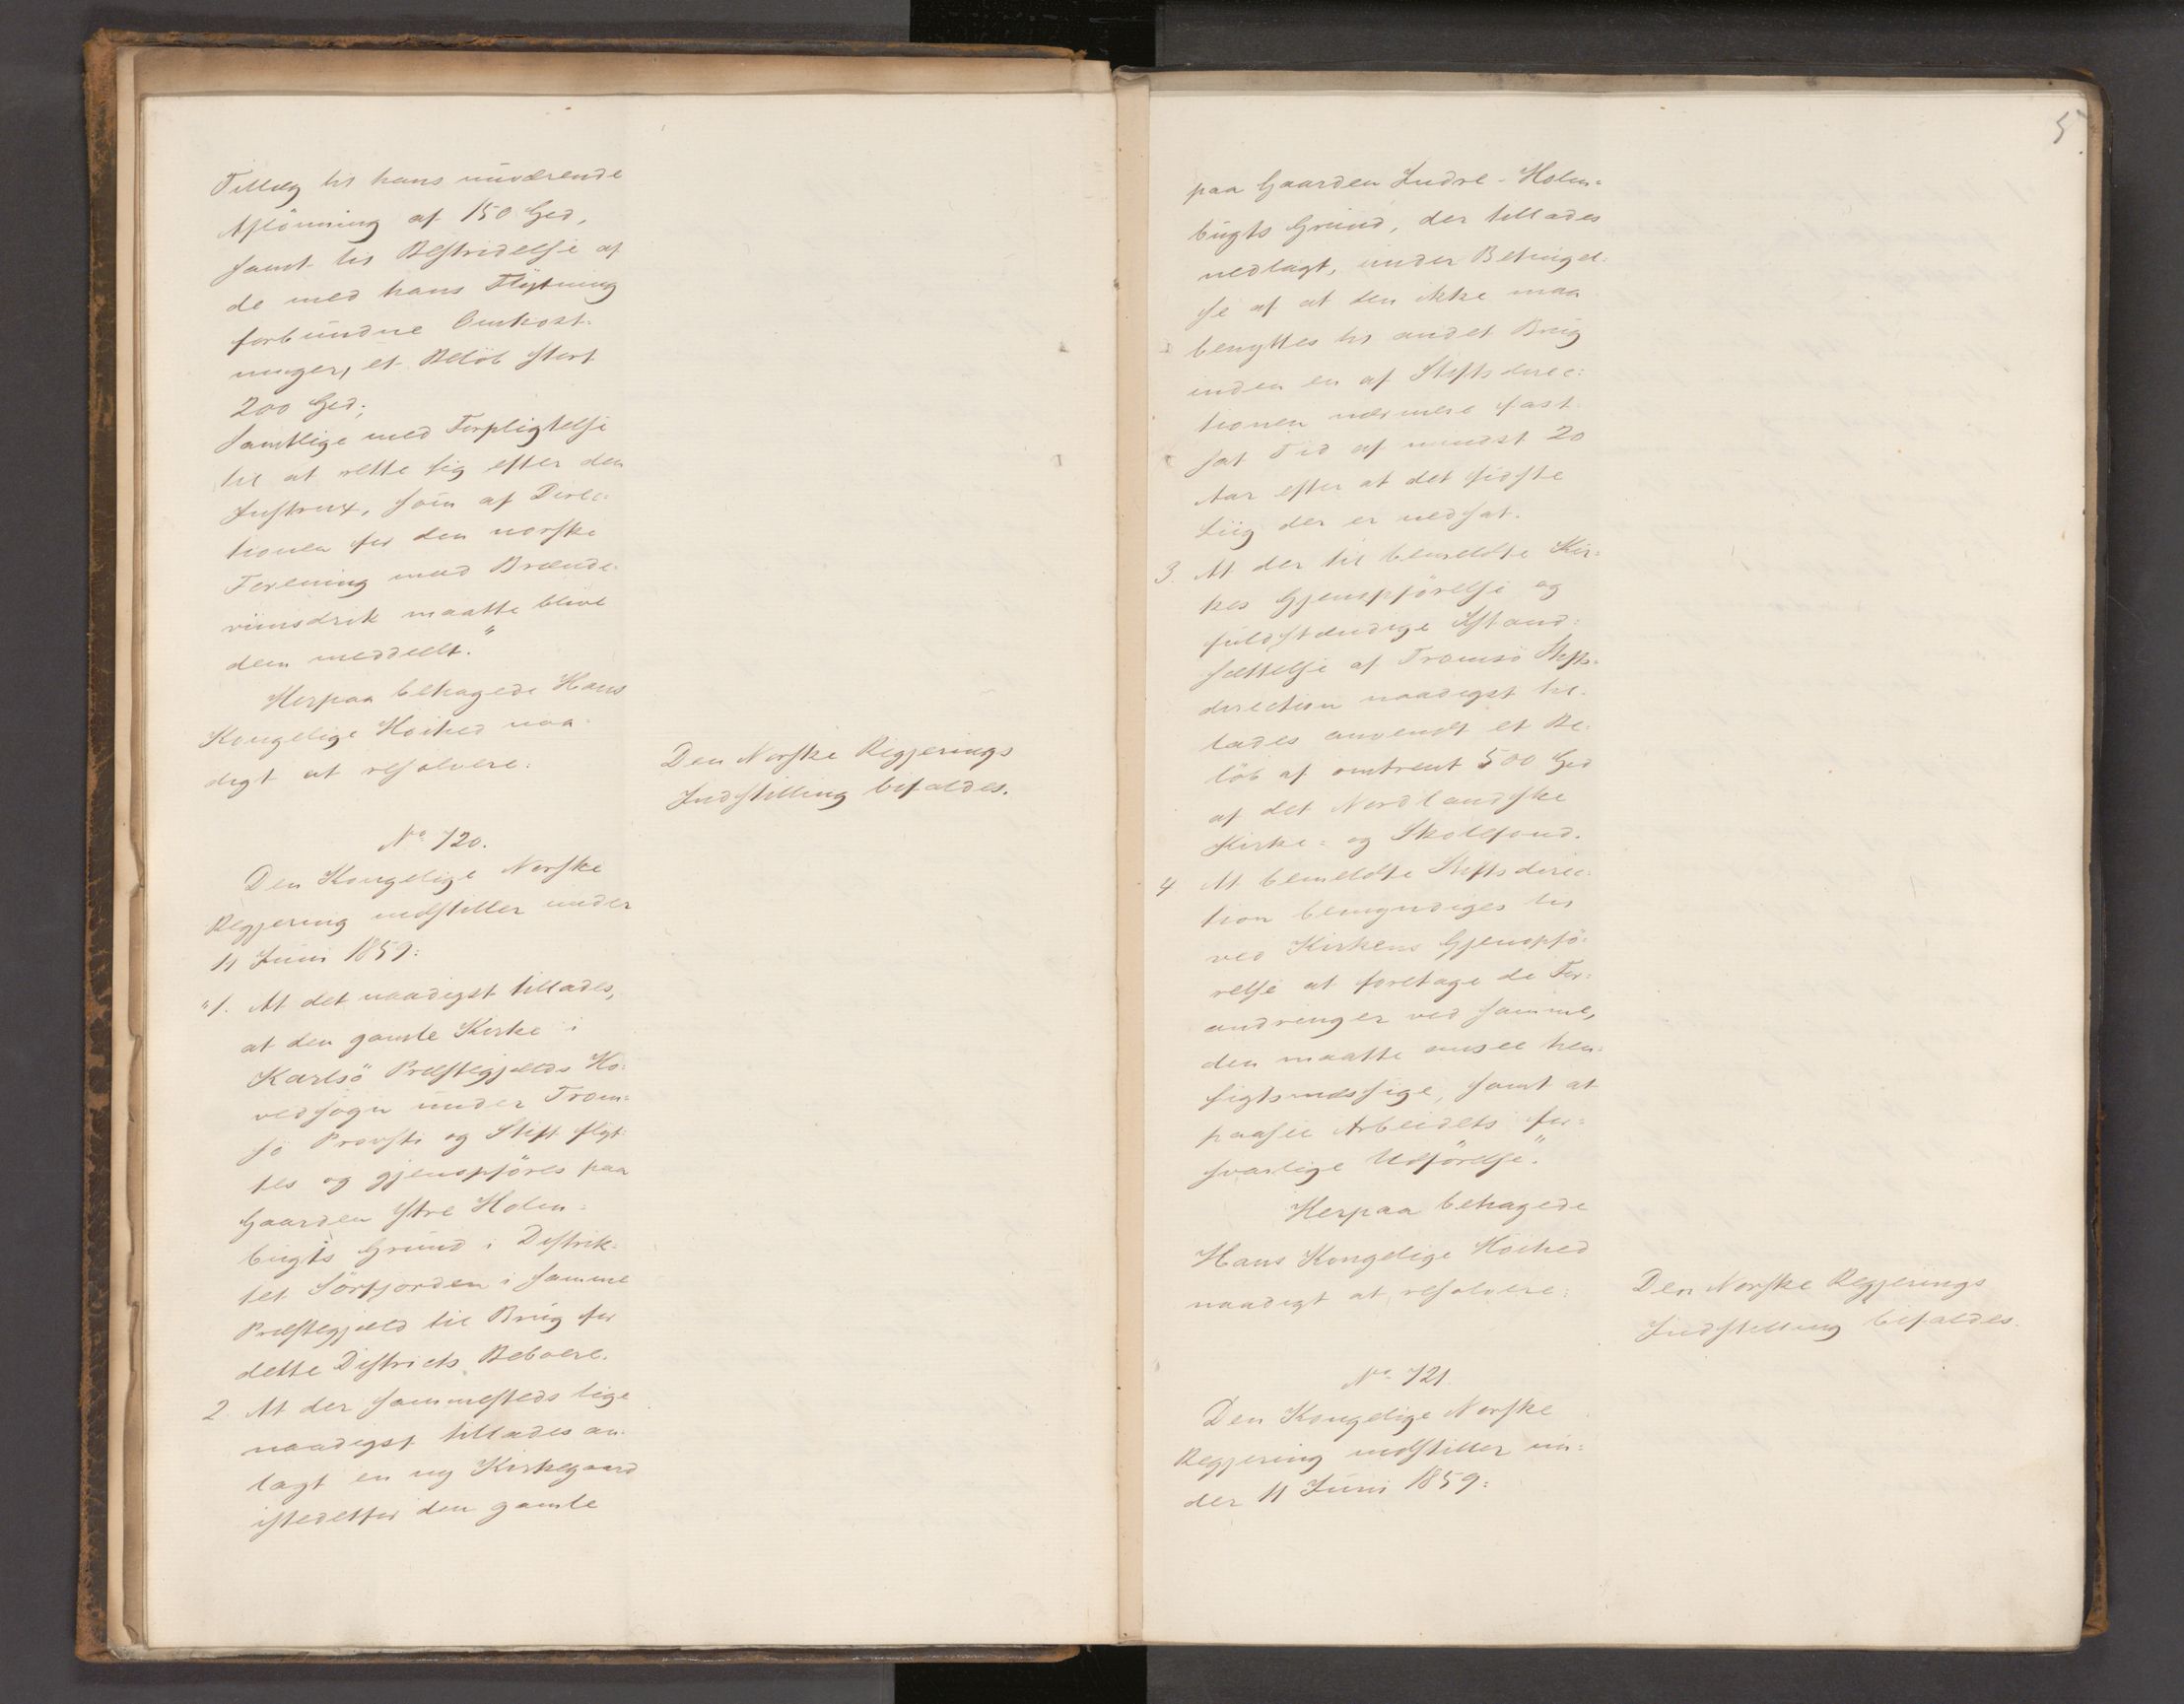 Tillæg til hans nuværende
Aflönning af 150 Spd,
samt til Bestridelse af
de med hans Flytning
forbundne Omkost-
ninger, et Belöb stort
200 Spd;
Samtlige med Forpligtelse
til at rette sig efter den
Instrux, som af Direc-
tionen for den norske
Forening mod Brænde-
viinsdrik maatte blive
dem meddeelt."
Herpaa behagede Hans
Kongelige Höihed naa-
digt at resolvere:
Den Norske Regjerings
Indstilling bifaldes.
No 720.
Den Kongelige Norske
Regjering indstiller under
11 Juni 1859:
"1. At det naadigst tillades,
at den gamle Kirke i
Karlsö Præstegjælds Ho-
vedsogn under Trom-
sö Provsti og Stift flyt-
tes og gjenopföres paa
Gaarden Ytre Holm-
bugts Grund i Distrik-
tet Sörfjorden i samme
Præstegjæld til Brug for
dette Districts Beboere.
2 At der sammesteds lige
naadigst tillades an-
lagt en ny Kirkegaard
istedetfor den gamle
5
paa Gaarden Indre-Holm-
bugts Grund, der tillades
nedlagt, under Betingel-
se af at den ikke maa
benyttes til andet Brug
inden en af Stiftsdirec-
tionen nærmere fast-
sat Tid af mindst 20
Aar efter at det sidste
Liig der er nedsat.
3. At der til bemeldte Kir-
kes Gjenopförelse og
fuldstændige Istand-
sættelse af Tromsö Stifts-
direction naadigst til-
lades anvendt et Be-
löb af omtrent 500 Spd
af det Nordlandske
Kirke- og Skolefond.
4 At bemeldte Stiftsdirec-
tion bemyndiges til
ved Kirkens Gjenopfö-
relse at foretage de For-
andringer ved samme,
den maatte ansee hen-
sigtsmæssige, samt at
paasee Arbeidets for-
svarlige Udförelse."
Herpaa behagede
Hans Kongelige Höihed
naadigt at resolvere:
Den Norske Regjerings
Indstilling bifaldes.
No 721
Den Kongelige Norske
Regjering indstiller un-
der 11 Juni 1859: